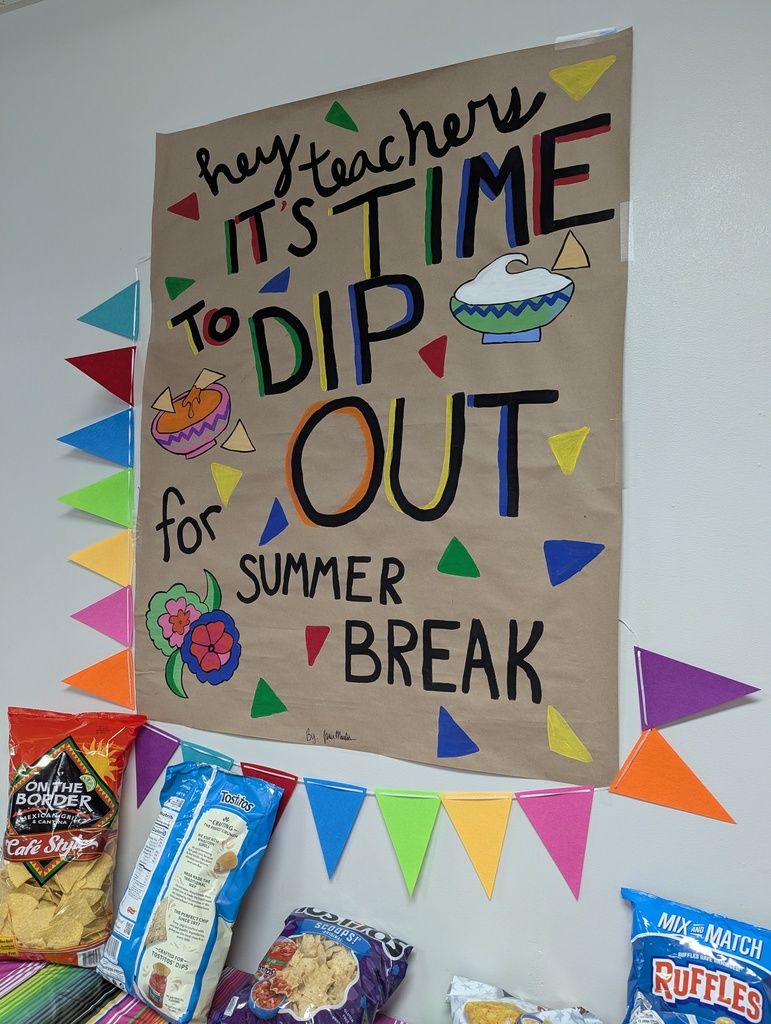 hey teachers
IT'S TIME
TO DIP
OUT
for
SUMMER
BREAK
By:
ON THE
BORDER
MEXICAN GRILL
& CANTINA
Café Style
TOSTITOS
CRAFTING
THE PERFECT CHIP
SINCE 1977
CRAFTED FOR
TOSTITOS® DIPS
TOSTITOS
SCOOPS!
MIX AND MATCH
RUFFLES